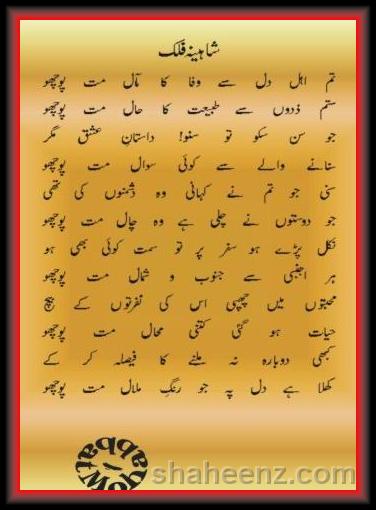 شاہینہ فلک
تم اہل دل سے وفا کا مآل مت پوچھو
ستم ذدوں سے طبیعت کا حال مت پوچھو
جو سن سکو تو سنو! داستانِ عشق مگر
سنانے والے سے کوئی سوال مت پوچھو
سنی جو تم نے کہانی وہ دشمنوں کی تھی
جو دوستوں نے چلی ہے وہ چال مت پوچھو
نکل پڑے ہو سفر پر تو سمت کوئی بھی ہو
ہر اجنبی سے جنوب و شمال مت پوچھو
محبتوں میں چھپی اس کی نفرتوں کے بیچ
حیات ہو گئی کتنی محال مت پوچھو
کبھی دوبارہ نہ ملنے کا فیصلہ کر کے
کھلا ہے دل پہ جو رنگِ ملال مت پوچھو
shaheenz.com